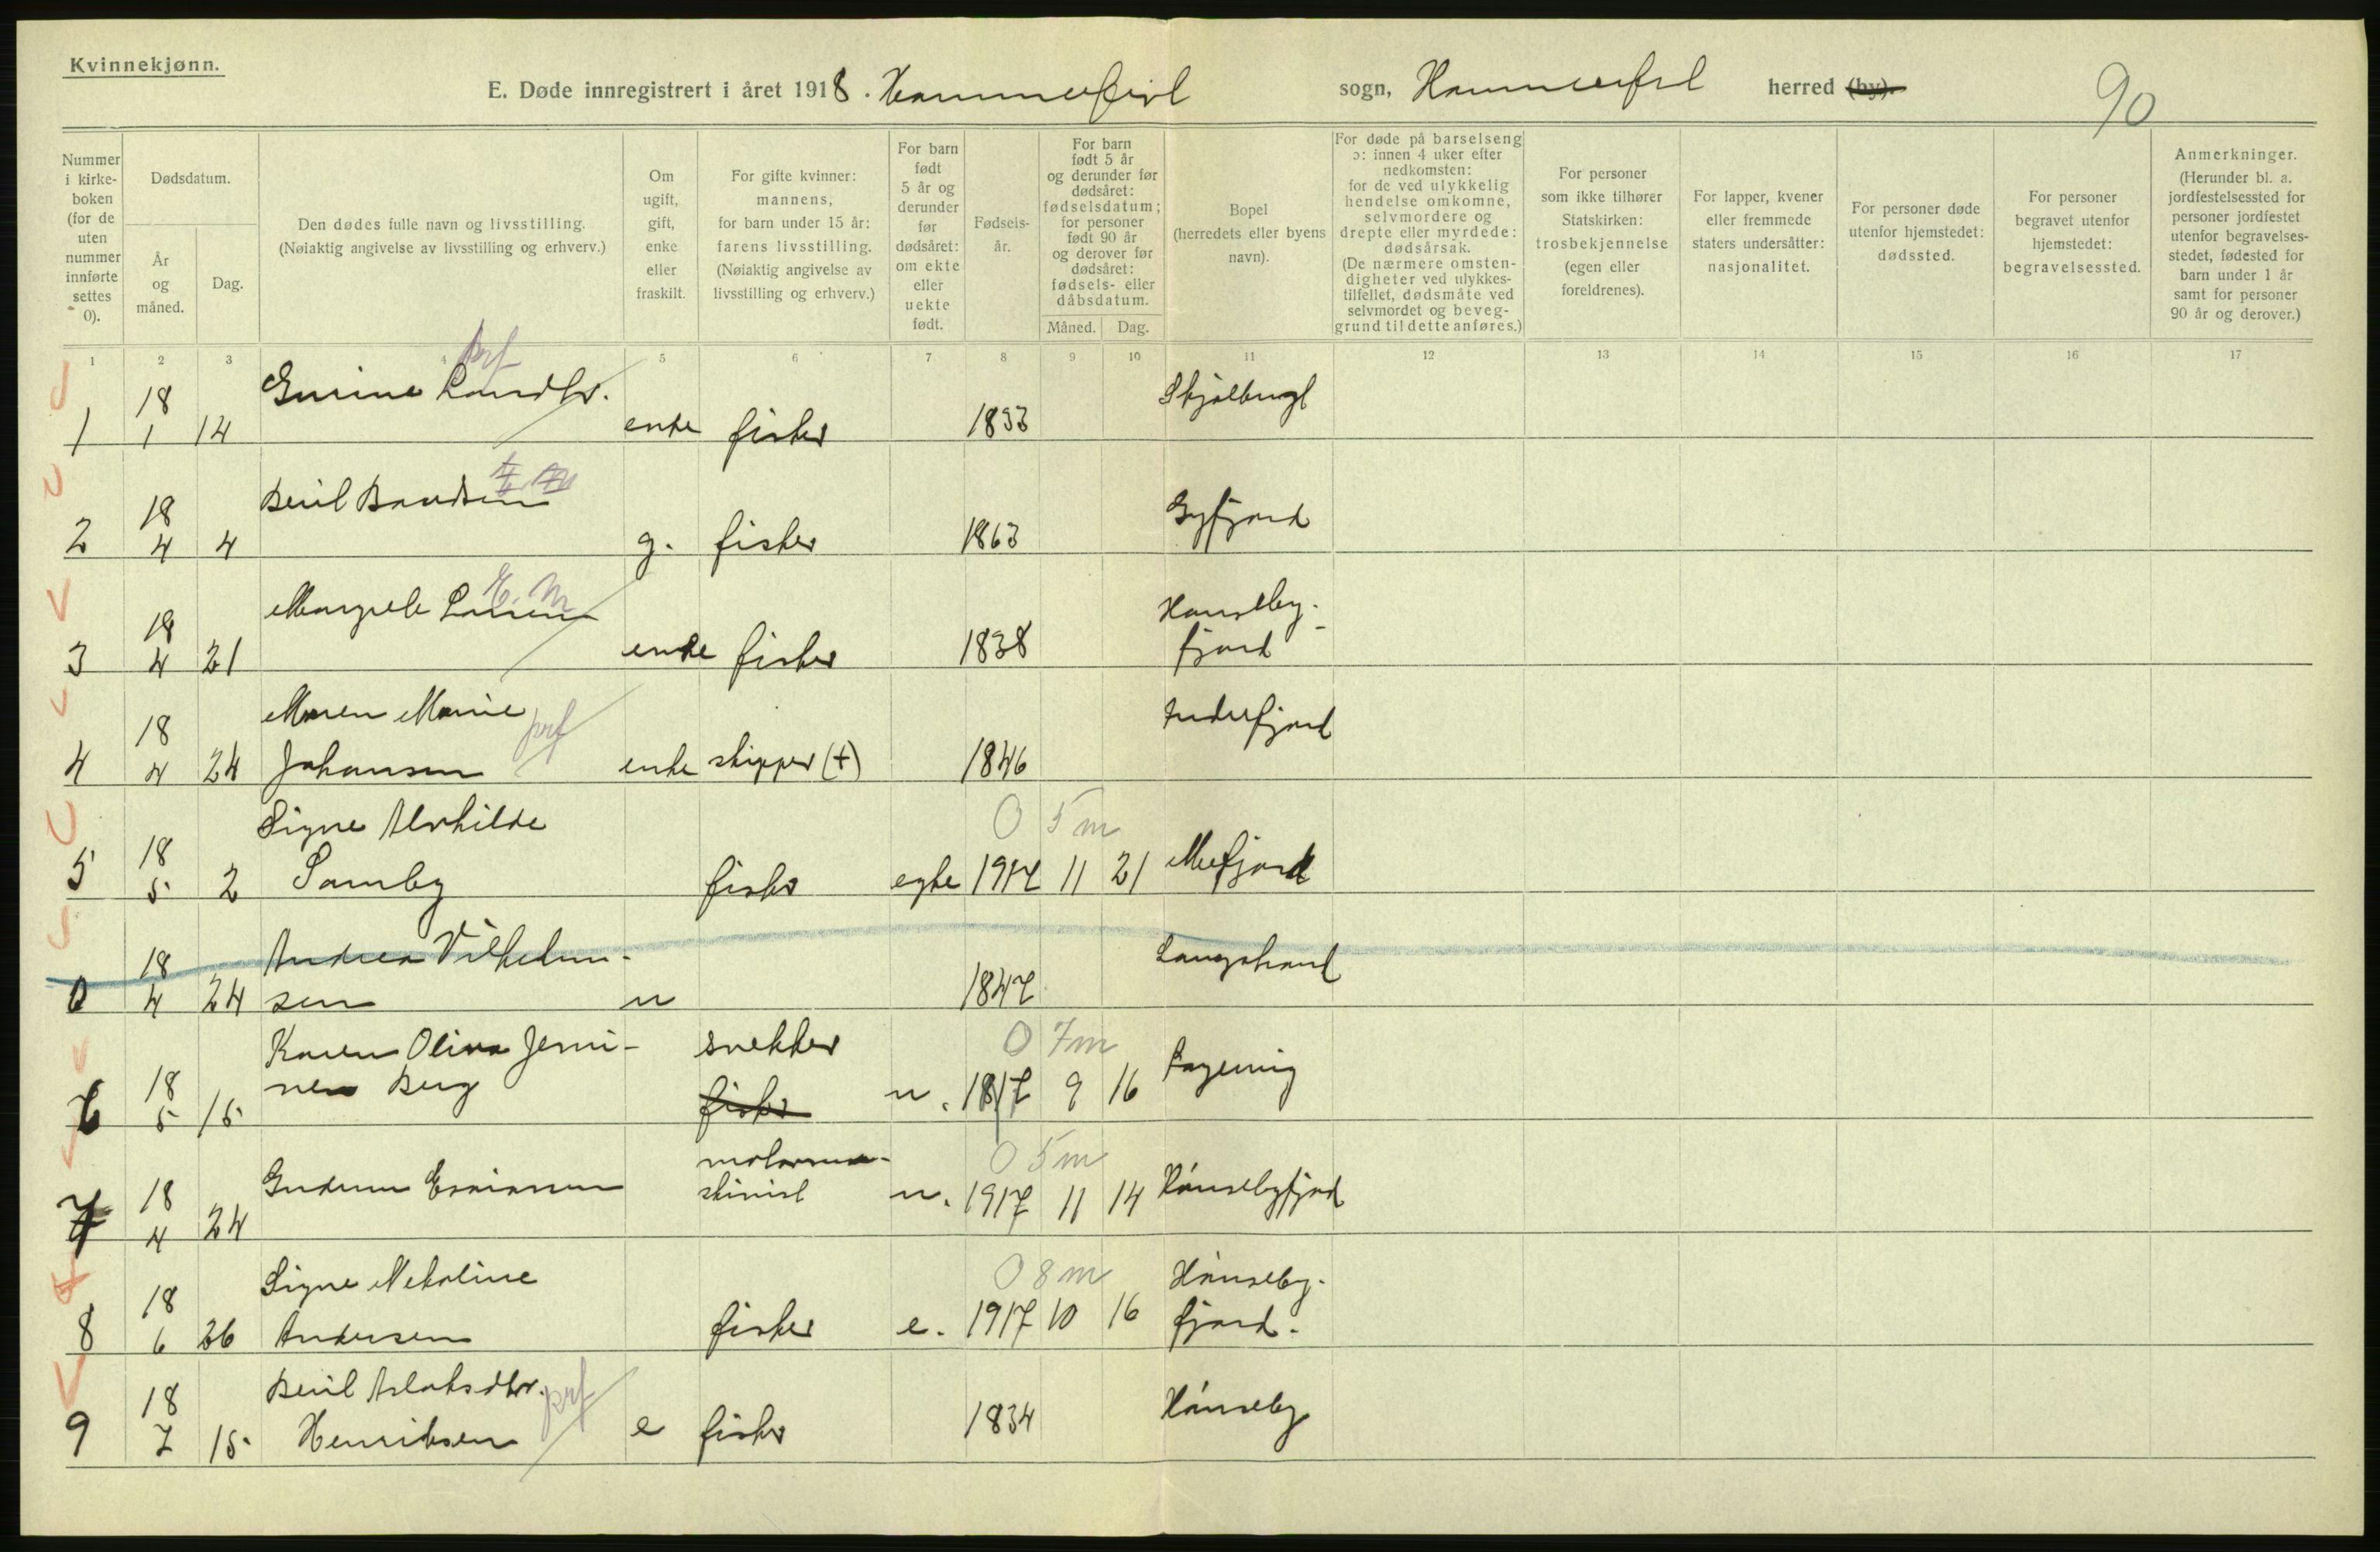 Kvinnekjønn.
E. Døde innregistrert i året 1918. Hammerfest sogn, Hammerfest herred (by).
90
Nummer i kirke-boken (for de uten nummer innførte settes 0).
Dødsdatum.
År og måned.
Dag.
Den dødes fulle navn og livsstilling.
(Nøiaktig angivelse av livsstilling og erhverv.)
Om ugift, gift, enke eller fraskilt.
For gifte kvinner: mannens, for barn under 15 år: farens livsstilling.
(Nøiaktig angivelse av livsstilling og erhverv.)
For barn født 5 år og derunder før dødsåret: om ekte eller uekte født.
Fødsels-år.
For barn født 5 år og derunder før dødsåret: fødselsdatum; for personer født 90 år og derover før dødsåret: fødsels- eller dåbsdatum.
Måned.
Dag.
Bopel
(herredets eller byens navn).
For døde på barselseng ɔ: innen 4 uker efter nedkomsten: for de ved ulykkelig hendelse omkomne, selvmordere og drepte eller myrdede: dødsårsak.
(De nærmere omsten-digheter ved ulykkes-tilfellet, dødsmåte ved selvmordet og beveg-grund til dette anføres.)
For personer som ikke tilhører Statskirken: trosbekjennelse (egen eller foreldrenes).
For lapper, kvener eller fremmede staters undersåtter: nasjonalitet.
For personer døde utenfor hjemstedet: dødssted.
For personer begravet utenfor hjemstedet: begravelsessted.
Anmerkninger.
(Herunder bl. a. jordfestelsessted for personer jordfestet utenfor begravelses-stedet, fødested for barn under 1 år samt for personer 90 år og derover.)
1 2 3 4 5 6 7 8 9 10 11 12 13 14 15 16 17
1 18 1 14 enke fisker 1833
2 18 4 4 Berit g. fisker 1863
3 18 4 21 Margrete Larsen enke fisker 1838 Hønseby-
fjord
4 18 4 24 Maren Marie
Johansen enke skipper (+) 1846 Indrefjord
0 5 m
5 18 5 2 Signe Alvhilde
Samby fisker egte 1917 11 21 Mefjord
0 18 4 24 Andrea Vilhelm-
sen u 1847 Langstrand
0 7 m
6 18 5 15 Karen Oliva Jenni- snekker
Berg fisker u. 1917 9 16
0 5 m
7 18 4 24 Gudrun Esaiassen motorma-
skinist u. 1917 11 14 Hønsebyfjord
0 8 m
8 18 6 26 Signe Nekoline
Andersen fisker e. 1917 10 16 Hønseby-
fjord.
9 18 7 15 Berit Aslaksdtr.
Henriksen e fisker 1834 Hønseby